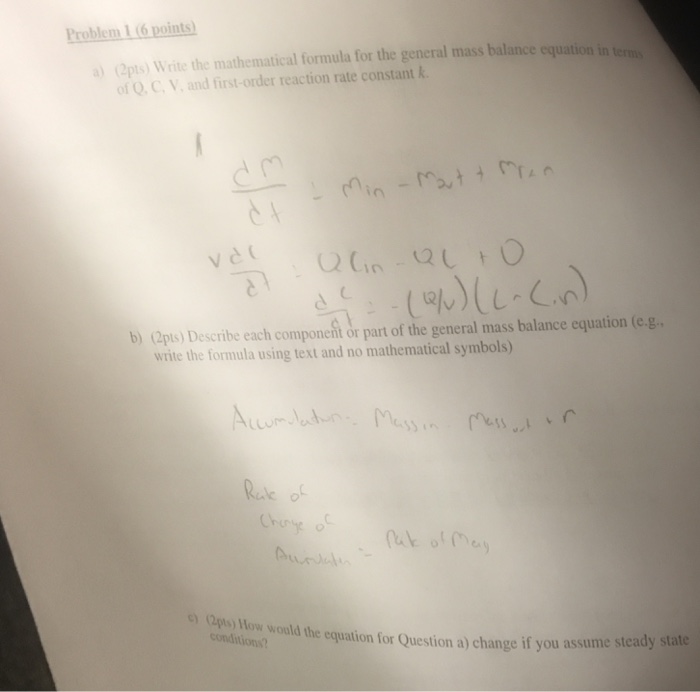 Problem 1 (6 points)
a) (2pts) Write the mathematical formula for the general mass balance equation in terms
of Q, C, V, and first-order reaction rate constant k.
dm/dt = Min - Mout + Mrxn
V dC/dt = QCin - QC + 0
dC/dt = -(Q/V)(C-Cin)
b) (2pts) Describe each component or part of the general mass balance equation (e.g.,
write the formula using text and no mathematical symbols)
Accumulation = Mass in - Mass out + r
Rate of
Change of
= Rate of Mass
c) (2pts) How would the equation for Question a) change if you assume steady state
conditions?